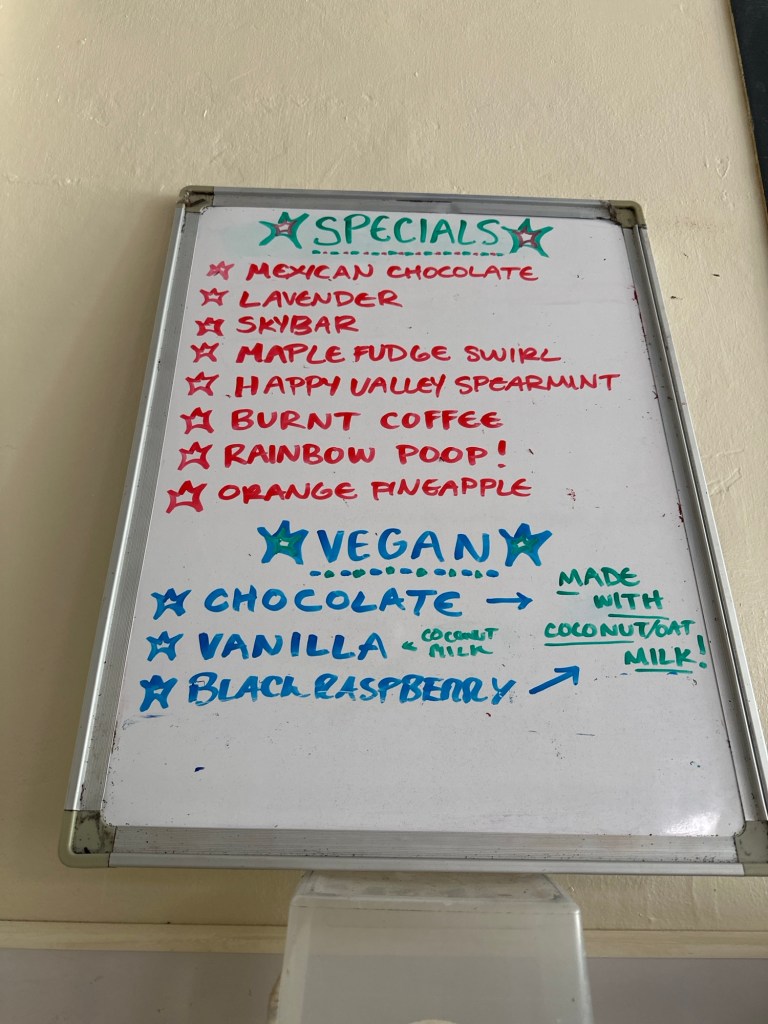 SPECIALS
MEXICAN CHOCOLATE
LAVENDER
SKYBAR
MAPLE FUDGE SWIRL
HAPPY VALLEY SPEARMINT
BURNT COFFEE
RAINBOW POOP!
ORANGE PINEAPPLE
VEGAN
CHOCOLATE →
VANILLA
COCONUT
MILK
BLACK RASPBERRY
MADE
WITH
COCONUT/OAT
MILK!